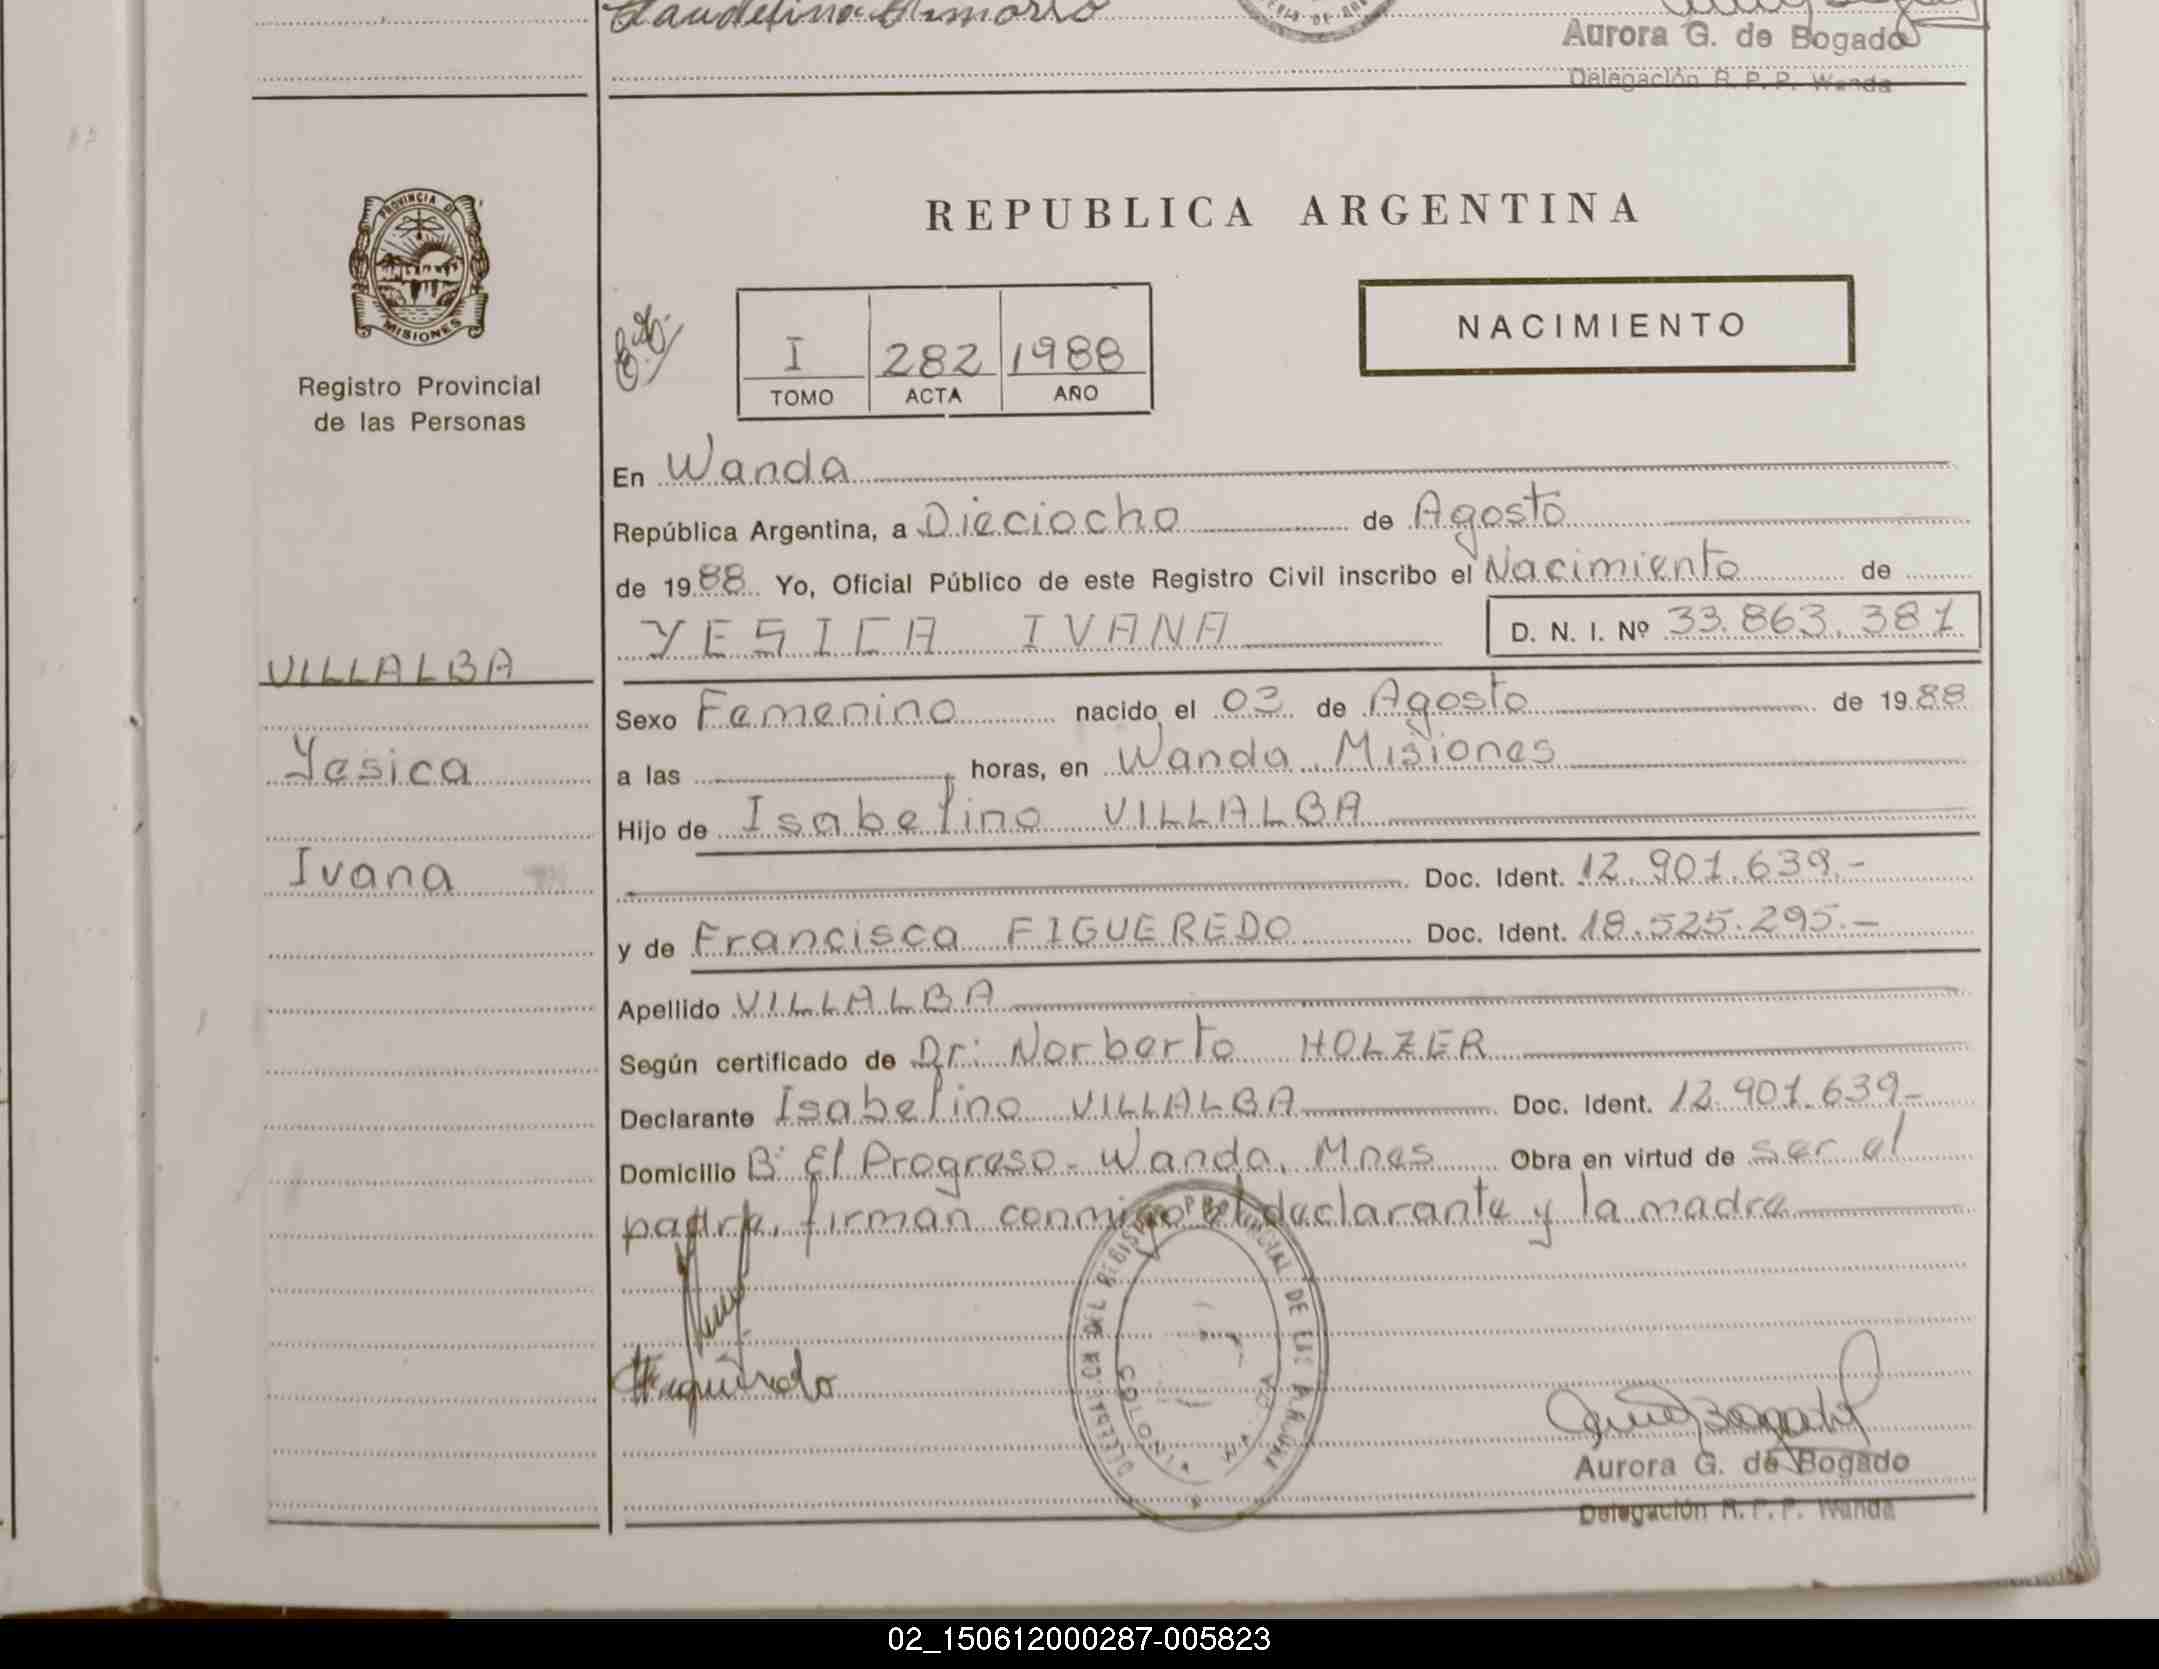 Aurora G. de Bogado
Delegación R. P. P. Wanda
PROVINCIA DE
MISIONES
Registro Provincial
de las Personas
VILLALBA
Yesica
Ivana
REPUBLICA ARGENTINA
NACIMIENTO
I 282 1988
TOMO ACTA AÑO
En Wanda
República Argentina, a Dieciocho de Agosto
de 1988 Yo, Oficial Público de este Registro Civil inscribo el Nacimiento de
YESICA IVANA D. N. I. Nº 33.863.381
Sexo Femenino nacido el 03 de Agosto de 1988
a las horas, en Wanda, Misiones
Hijo de Isabelino VILLALBA
Doc. Ident. 12.901.639.-
y de Francisca FIGUEREDO Doc. Ident. 18.525.295.-
Apellido VILLALBA
Según certificado de Dr: Norberto HOLZER
Declarante Isabelino VILLALBA Doc. Ident. 12.901.639-
Domicilio B: El Progreso - Wanda, Mnes Obra en virtud de ser el
padre, firman conmigo el declarante y la madre
DELEGACION DEL REGISTRO PROVINCIAL DE LAS PERSONAS
COLONIA WANDA
Aurora G. de Bogado
Delegación R. P. P. Wanda
02_150612000287-005823